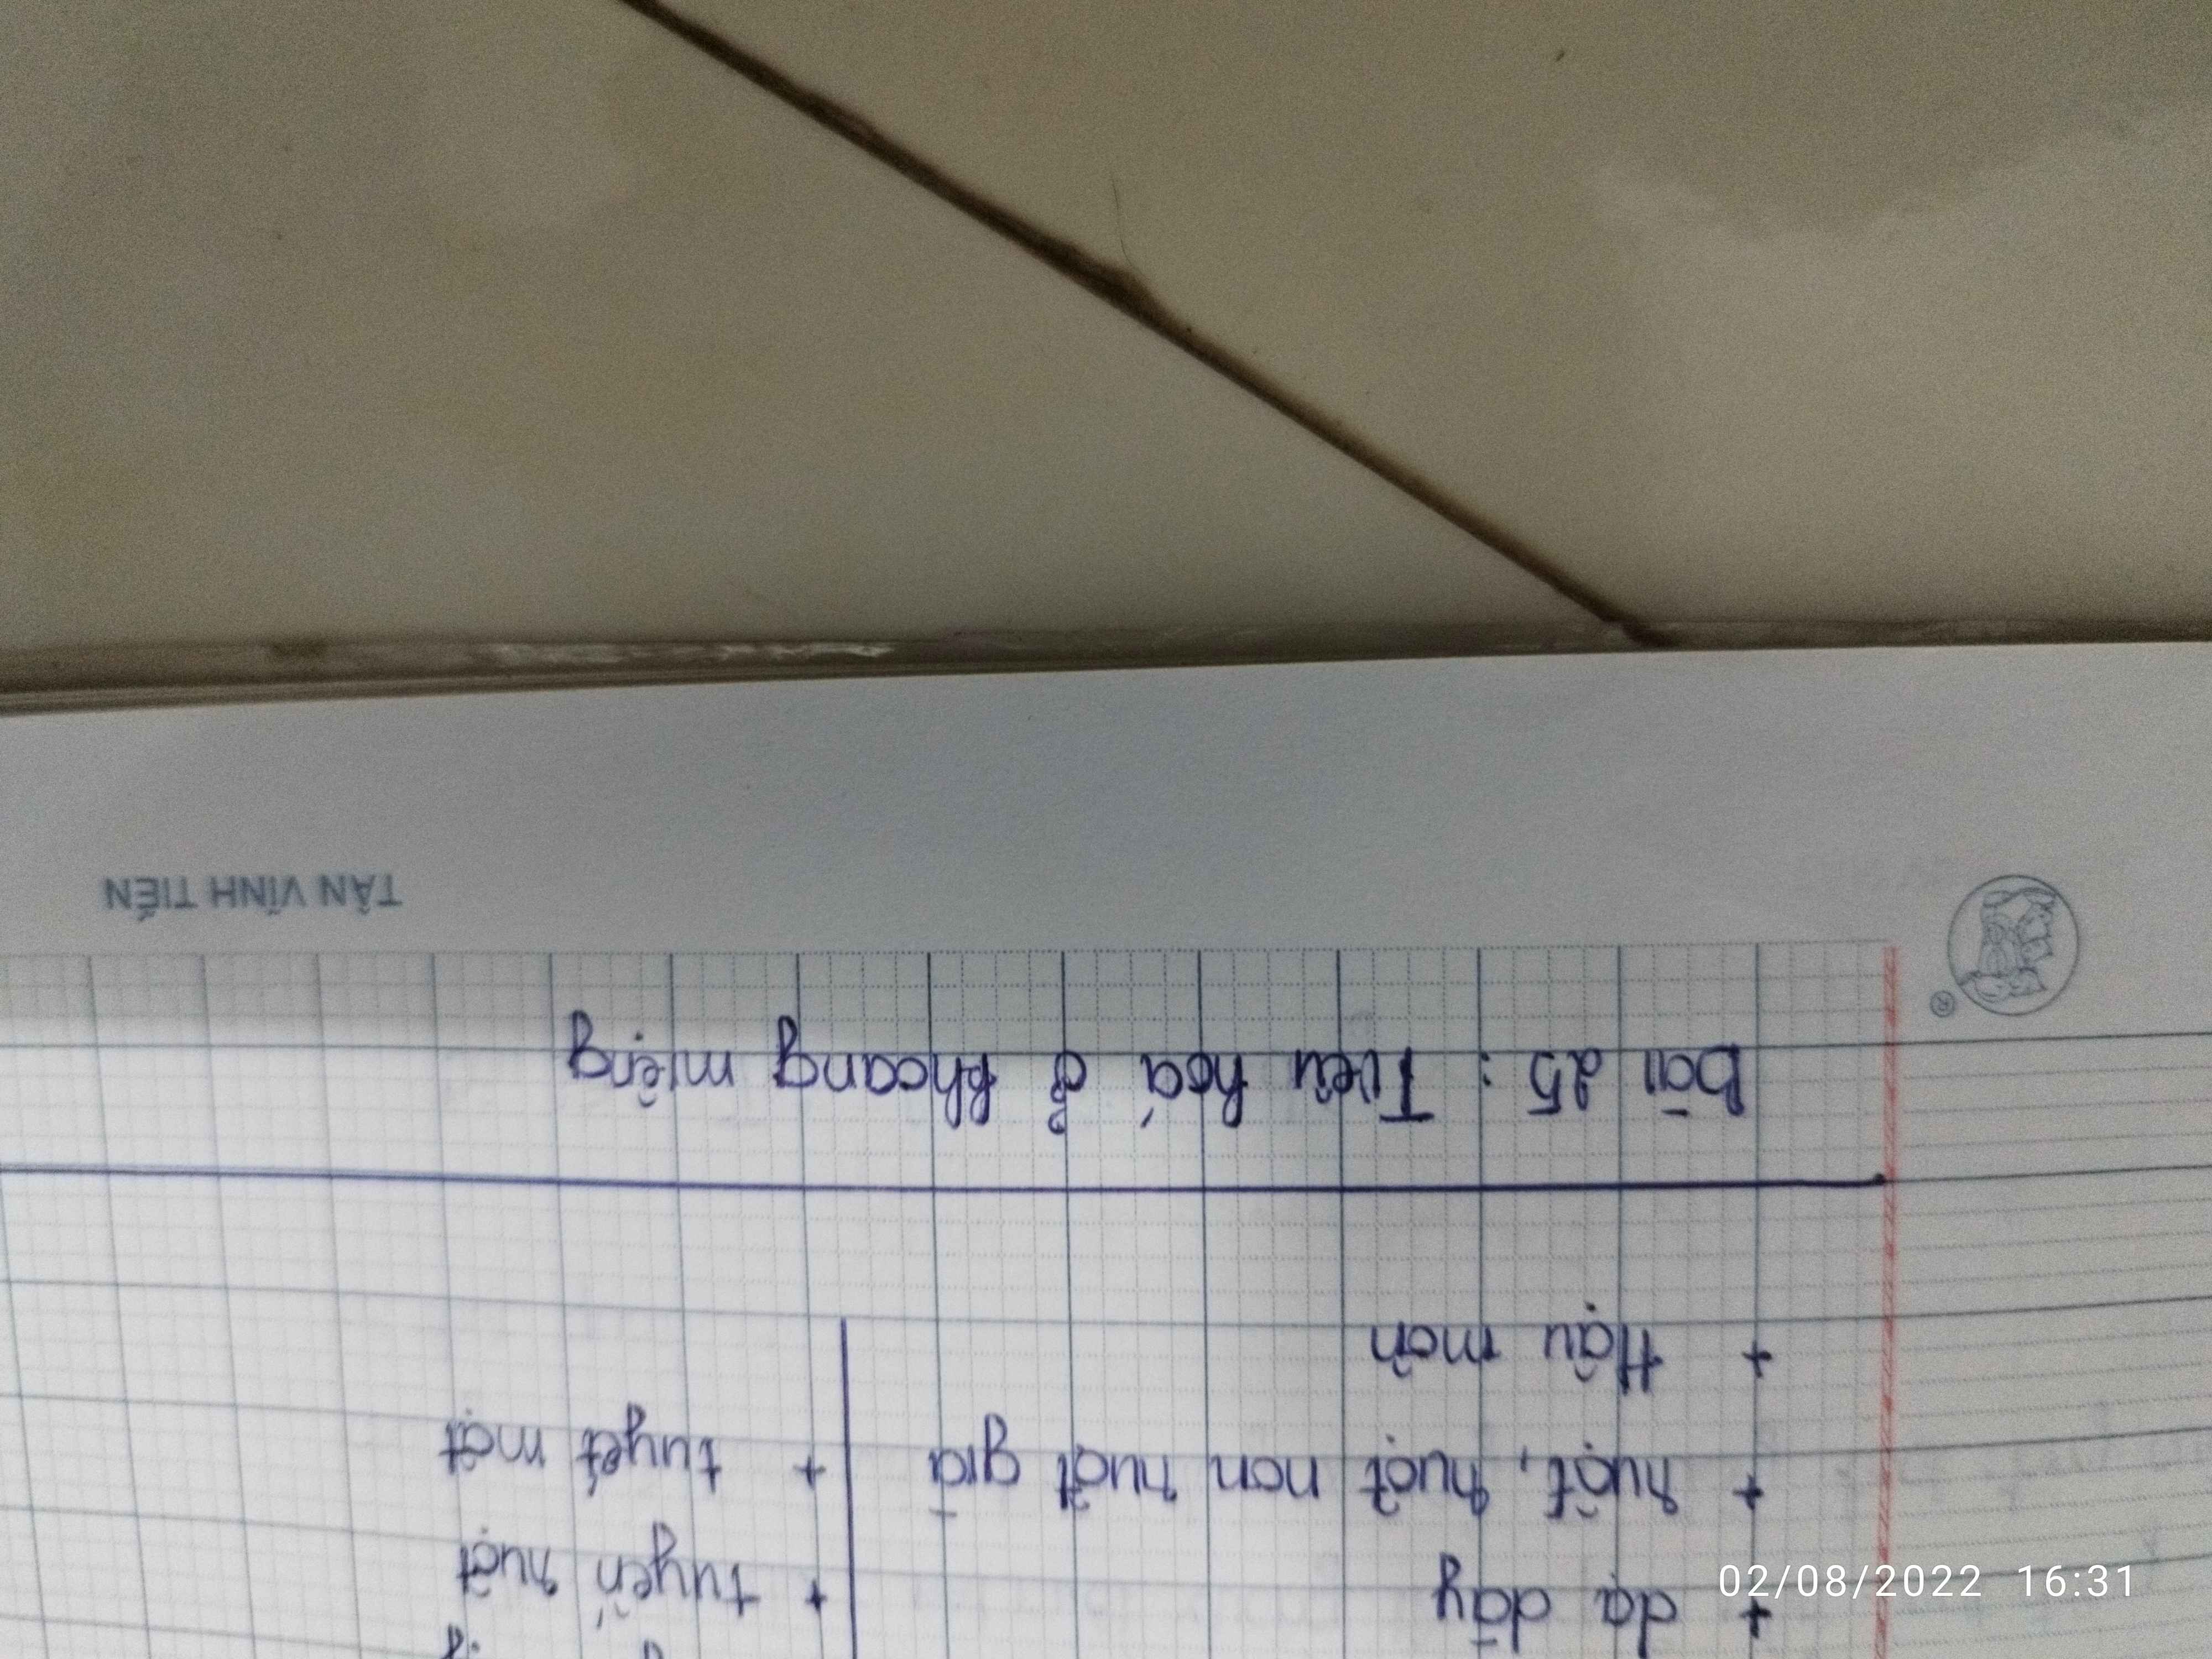 + dạ dày
+ tuyến ruột
+ ruột, ruột non ruột già
+ tuyết mật
+ Hậu môn
bài 25: Tiêu hoá ở khoang miệng
TÂN VĨNH TIẾN
®
02/08/2022 16:31